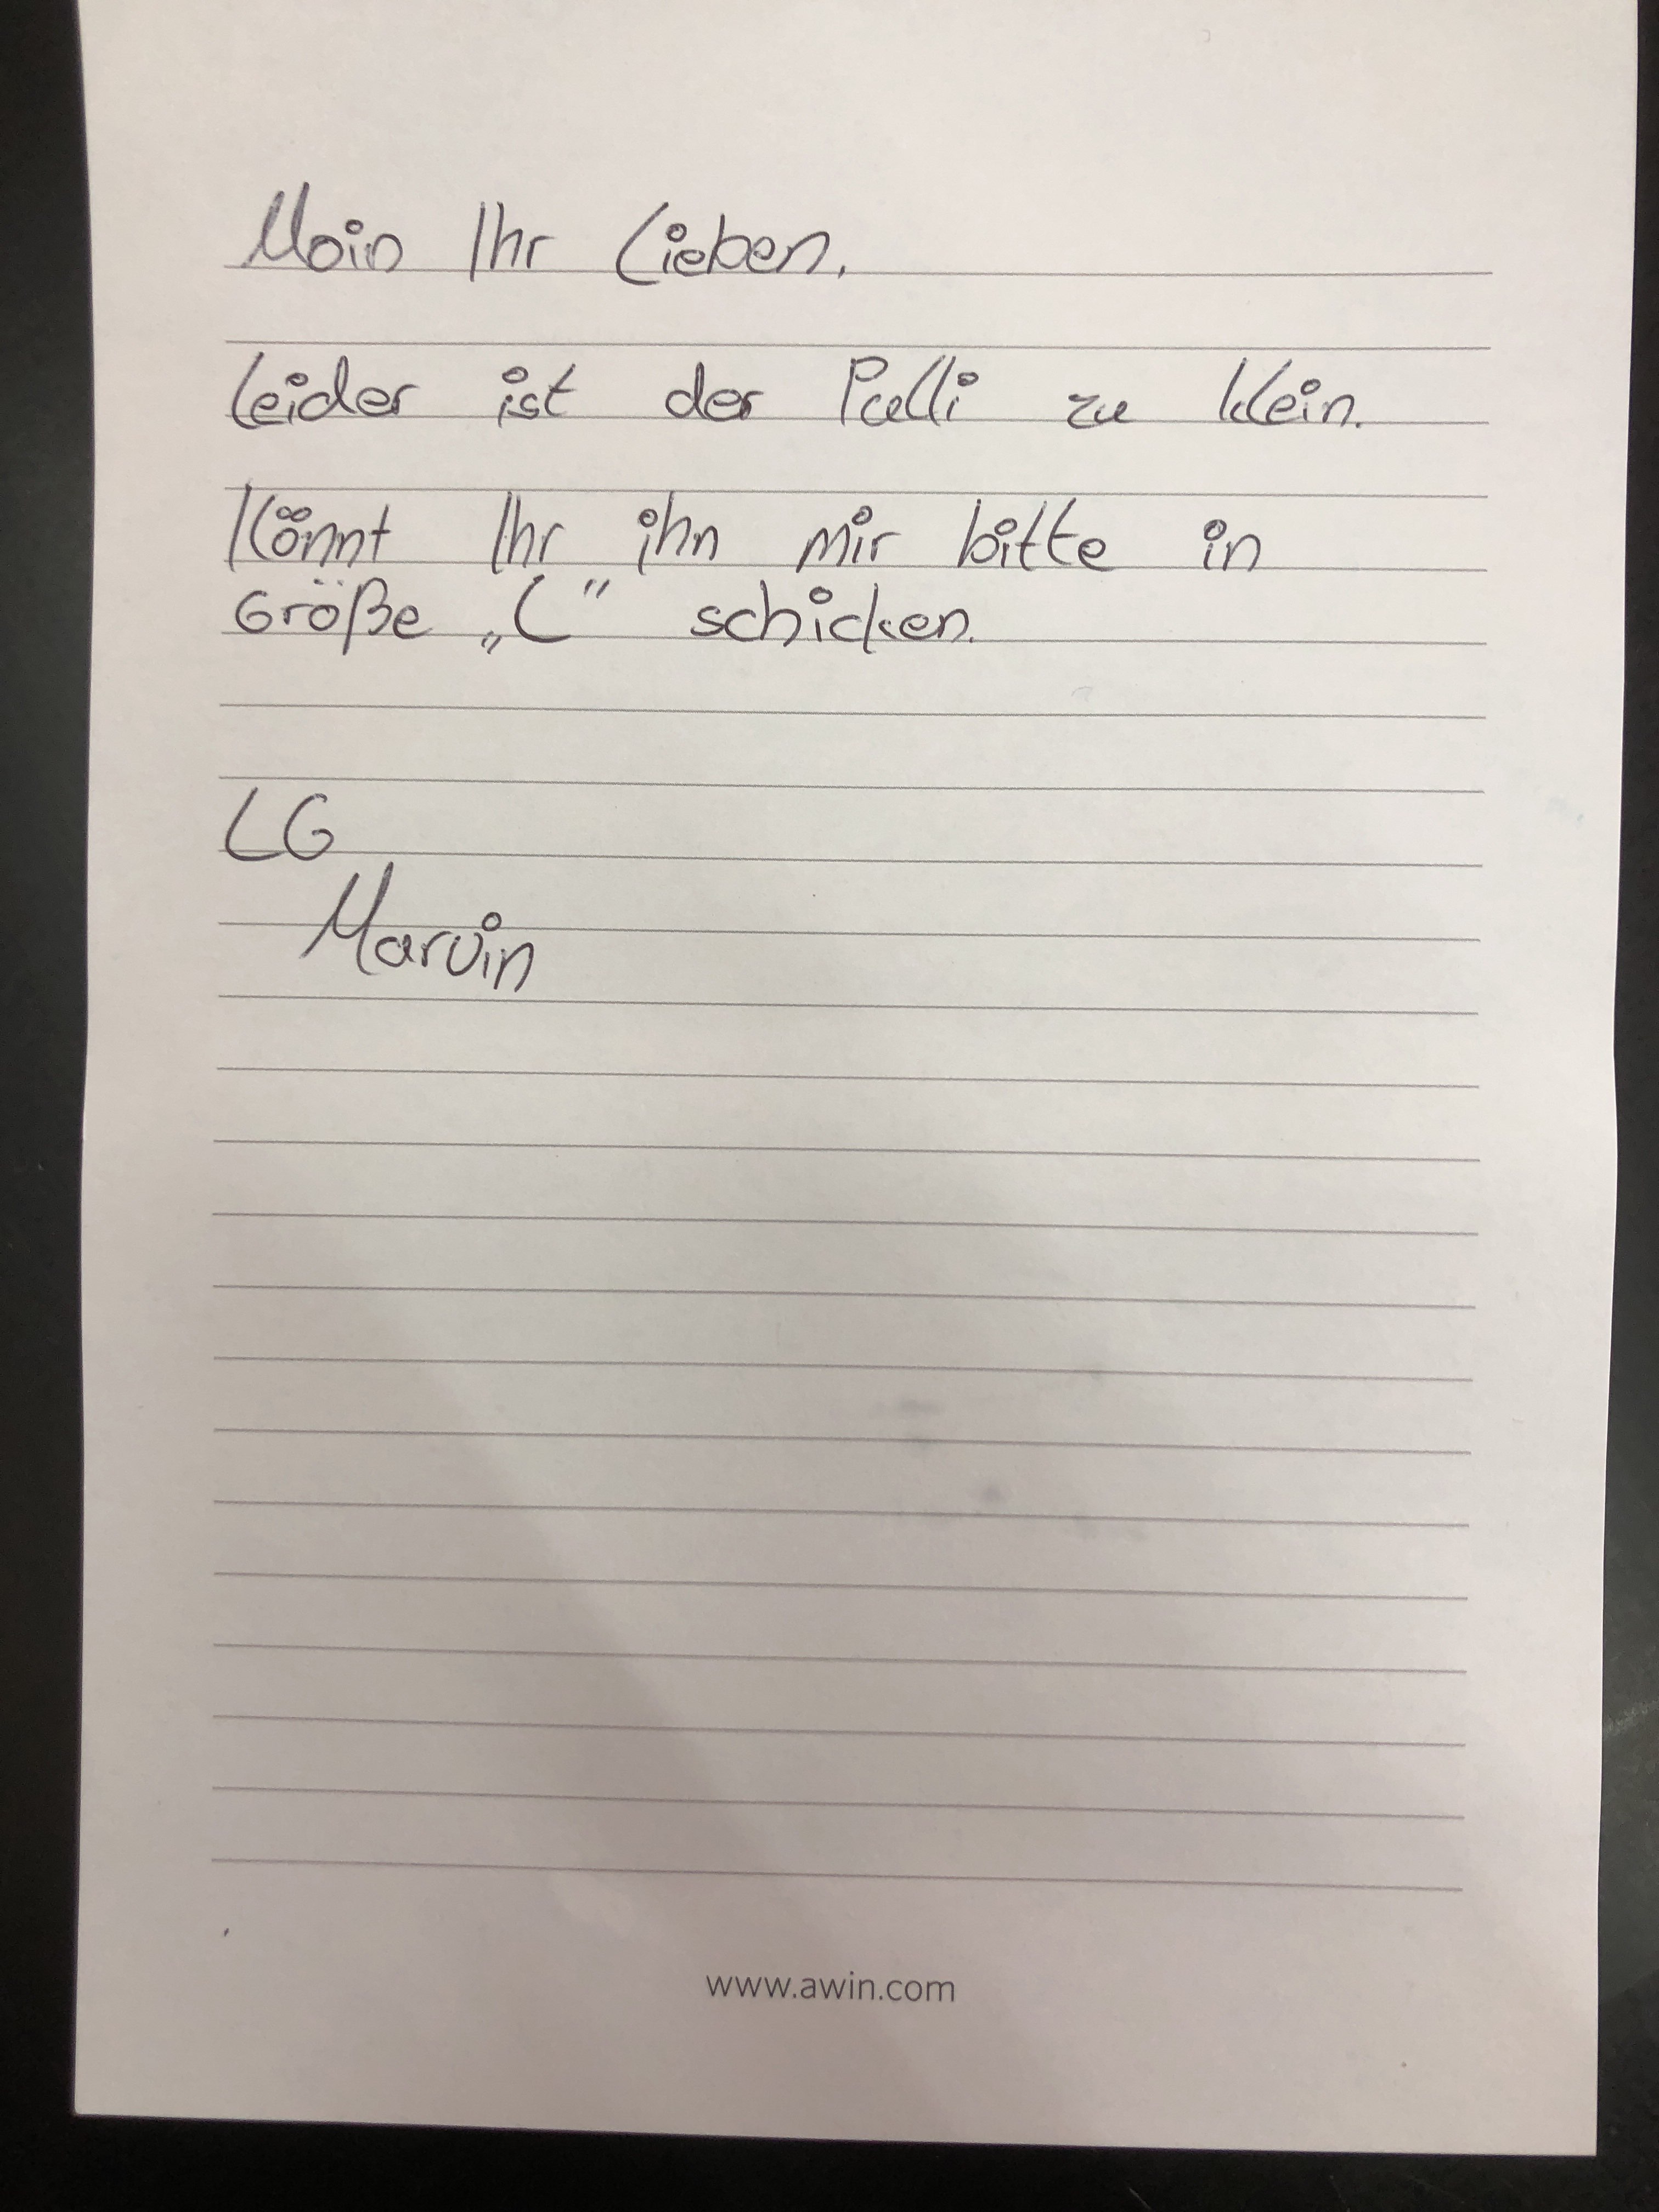 Moin Ihr Lieben,
leider ist der Pulli zu klein.
Könnt Ihr ihn mir bitte in
Größe „L" schicken.
LG
Marvin
www.awin.com